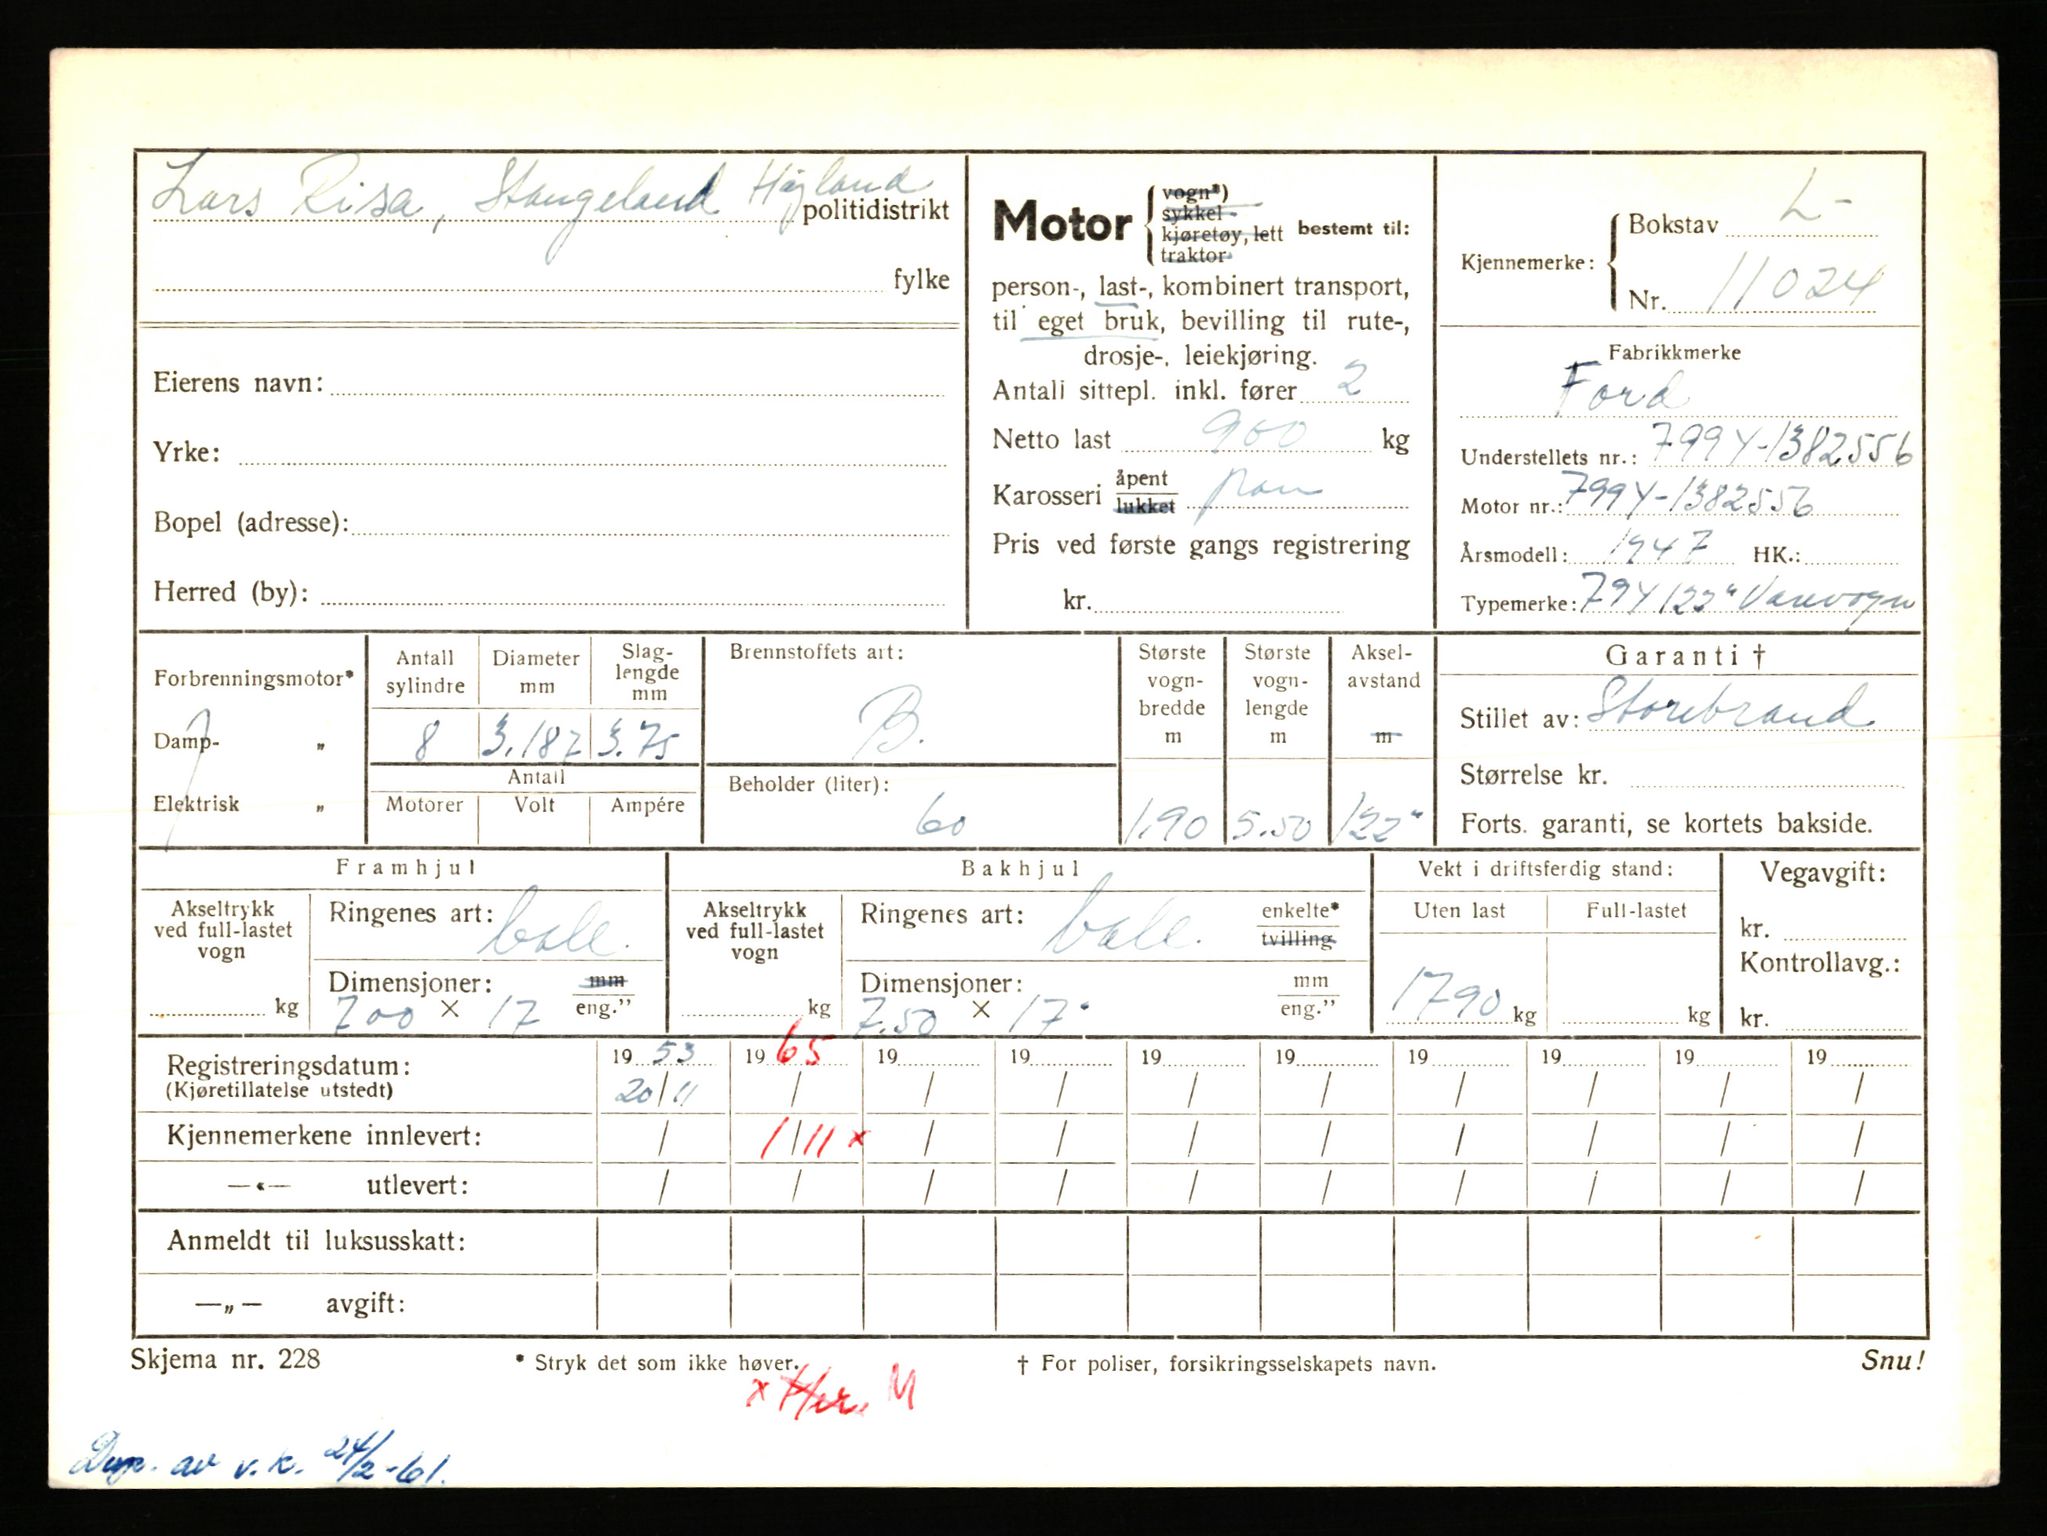 Lars Risa, Stangeland Høyland politidistrikt
fylke
Eierens navn:
Yrke:
Bopel (adresse):
Herred (by):
Motor { vogn*) sykkel kjøretøy, lett traktor bestemt til:
person-, last-, kombinert transport,
til eget bruk, bevilling til rute-,
drosje-, leiekjøring.
Antall sittepl. inkl. fører 2
Netto last 900 kg
Karosseri åpent lukket plan
Pris ved første gangs registrering
kr.
Kjennemerke: { Bokstav L-
Nr. 11024
Fabrikkmerke
Ford
Understellets nr.: 799Y-1382556
Motor nr.: 799Y-1382556
Årsmodell: 1947 HK.:
Typemerke: 79Y 122" Varevogn
Forbrenningsmotor*
Damp- „
Elektrisk „
Antall sylindre
Diameter mm
Slag-lengde mm
8 3.187 3.75
Antall
Motorer Volt Ampére
Brennstoffets art:
B.
Beholder (liter):
60
Største vogn-bredde m
1.90
Største vogn-lengde m
5.50
Aksel-avstand m
122"
Garanti †
Stillet av: Storebrand
Størrelse kr.
Forts. garanti, se kortets bakside.
Framhjul
Akseltrykk ved full-lastet vogn
kg
Ringenes art: ball.
Dimensjoner: mm eng."
700 × 17
Bakhjul
Akseltrykk ved full-lastet vogn
kg
Ringenes art: ball. enkelte* tvilling
Dimensjoner: mm eng."
7.50 × 17"
Vekt i driftsferdig stand:
Uten last Full-lastet
1790 kg kg
Vegavgift:
kr.
Kontrollavg.:
kr.
Registreringsdatum: 19 53 19 65 19 19 19 19 19 19 19 19
(Kjøretillatelse utstedt) 20/11 / / / / / / / / /
Kjennemerkene innlevert: / 1/11 x / / / / / / / /
—«— utlevert: / / / / / / / / / /
Anmeldt til luksusskatt:
—„— avgift:
Skjema nr. 228 * Stryk det som ikke høver. † For poliser, forsikringsselskapets navn. Snu!
x Her. M
av v.k. 24/2-61.